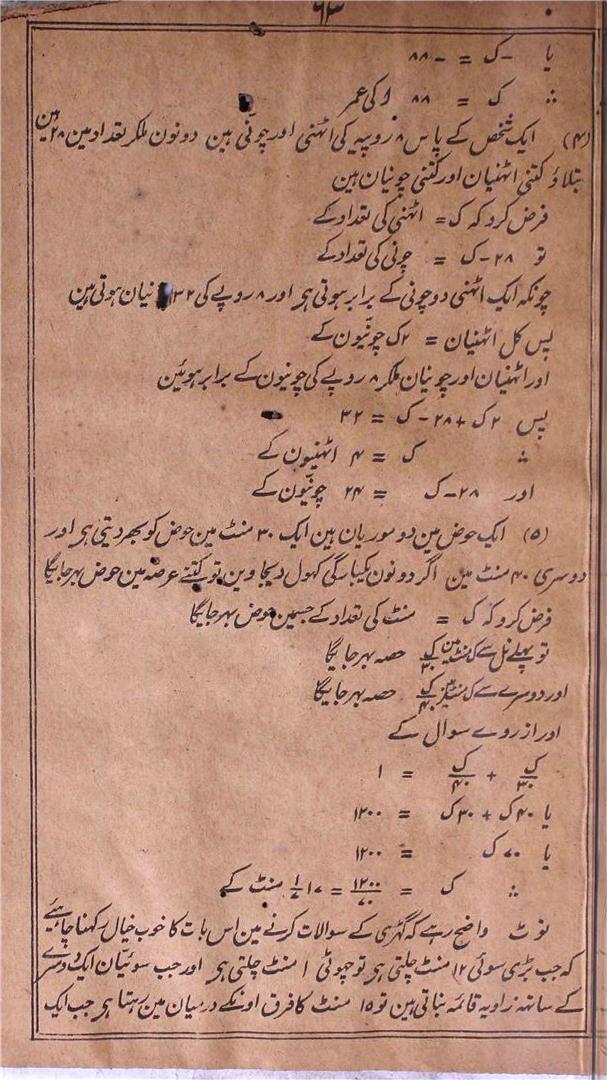 ۶۳
یا -ک = -۸۸
∴ ک = ۸۸ لڑکی عمر
(۴) ایک شخص کے پاس ۸ روپیہ کی اٹھنی اور چونی ہین دونون ملکر تعداد مین ۲۸ ہین
بتلاؤ کتنی اٹھنیان اور کتنی چونیان ہین
فرض کرو کہ ک = اٹھنی کی تعداد کے
تو ۲۸-ک = چونی کی تعداد کے
چونکہ ایک اٹھنی دو چونی کے برابر ہوتی ہے اور ۸ روپے کی ۳۲ نیان ہوتی ہین
پس کل اٹھنیان = ۲ک چونیون کے
اور اٹھنیان اور چونیان ملکر ۸ روپے کی چونیون کے برابر ہوئین
پس ۲ک + ۲۸-ک = ۳۲
∴ ک = ۴ اٹھنیون کے
اور ۲۸-ک = ۲۴ چونیون کے
(۵) ایک حوض مین دو موریان ہین ایک ۳۰ منٹ مین حوض کو بھر دیتی ہے اور
دوسری ۴۰ منٹ مین اگر دونون یکبارگی کھول دیجاوین تو کتنے عرصہ مین حوض بہر جائیگا
فرض کرو کہ ک = منٹ کی تعداد کے جسمین حوض بہر جائیگا
تو پہلے نل سے ک منٹ مین ک/۳۰ حصہ بہر جائیگا
اور دوسرے سے ک منٹ مین ک/۴۰ حصہ بہر جائیگا
اور از روے سوال کے
ک/۳۰ + ک/۴۰ = ۱
یا ۴۰ک + ۳۰ک = ۱۲۰۰
یا ۷۰ک = ۱۲۰۰
∴ ک = ۱۲۰۰/۷۰ = ۱۷ ۱/۷ منٹ کے
نوٹ واضح رہے کہ گھڑی کے سوالات کرنے مین اس بات کا خوب خیال رکھنا چاہیئے
کہ جب بڑی سوئی ۱۲ منٹ چلتی ہے تو چھوٹی ۱ منٹ چلتی ہے اور جب سوئیان ایک دوسرے
کے ساتھ زاویہ قائمہ بناتی ہین تو ۱۵ منٹ کا فرق اونکے درمیان مین رہتا ہے جب ایک